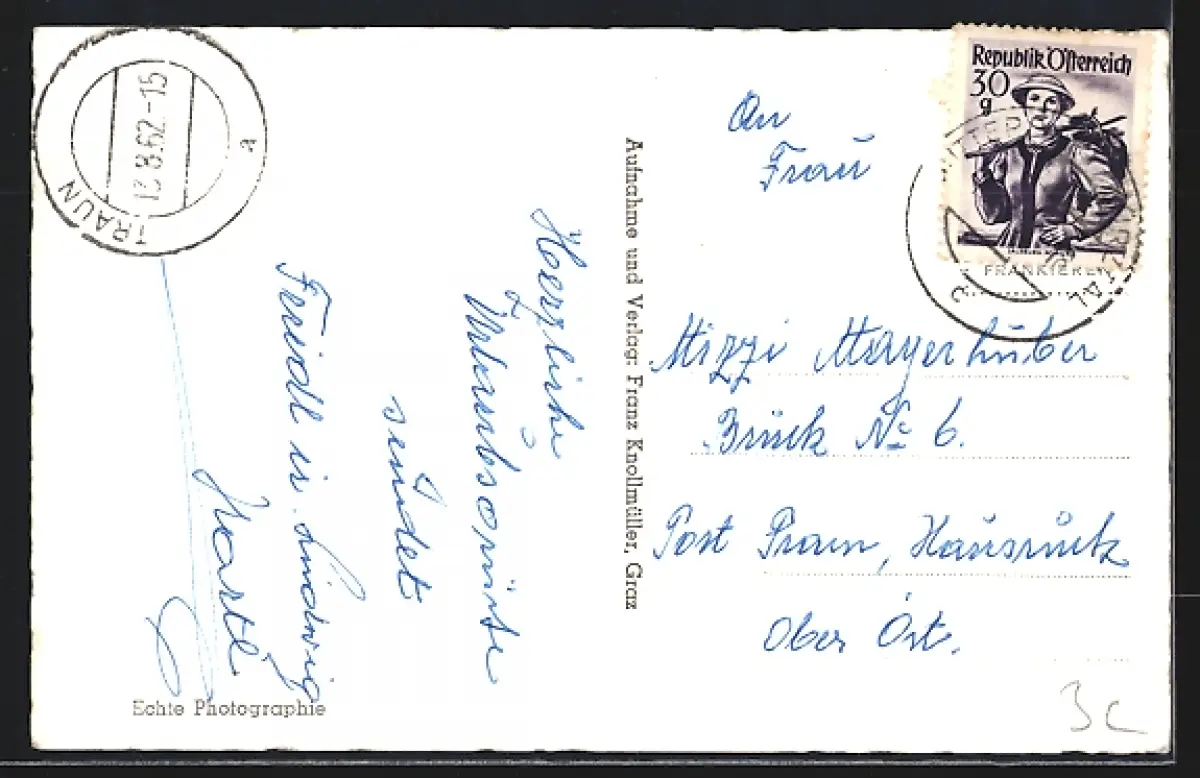 TRAUN
13.8.62-15
a
Republik Österreich
30
g
FRANKIEREN
An
Frau
Mizzi Mayerhuber
Bruck No 6.
Post Pram, Hausruck
Ober Öst.
Aufnahme und Verlag: Franz Knollmüller, Graz
Herzliche
Urlaubsgrüße
sendet
Friedl u. Ludwig
Echte Photographie
3c